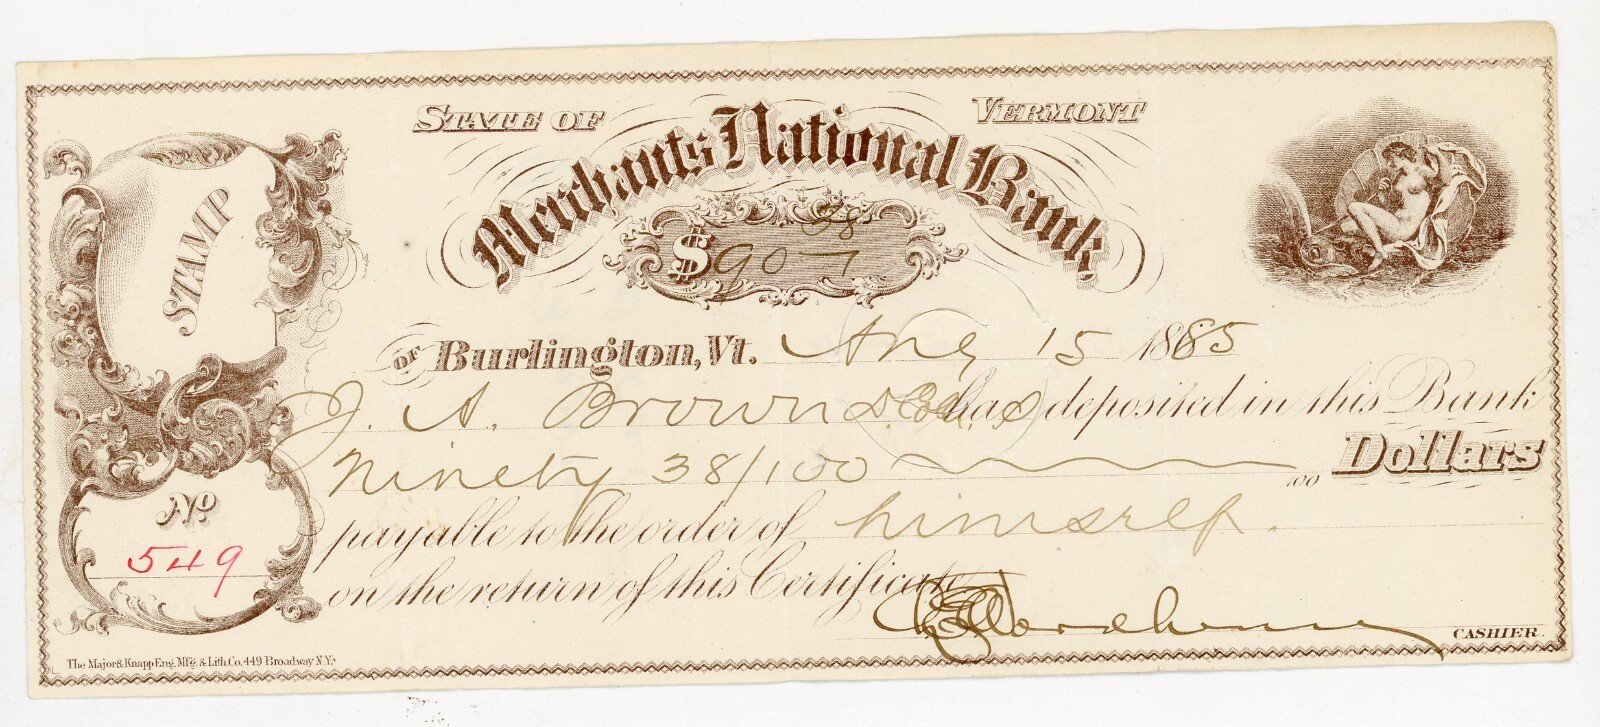 STATE OF VERMONT
Merchants National Bank
$90 38
OF Burlington, Vt. Aug 15 1885
J. A. Brown has deposited in this Bank
Ninety 38/100 /100 Dollars
payable to the order of himself.
on the return of this Certificate
CASHIER.
STAMP
No.
549
The Major & Knapp Eng. Mfg. & Lith. Co. 449 Broadway N.Y.